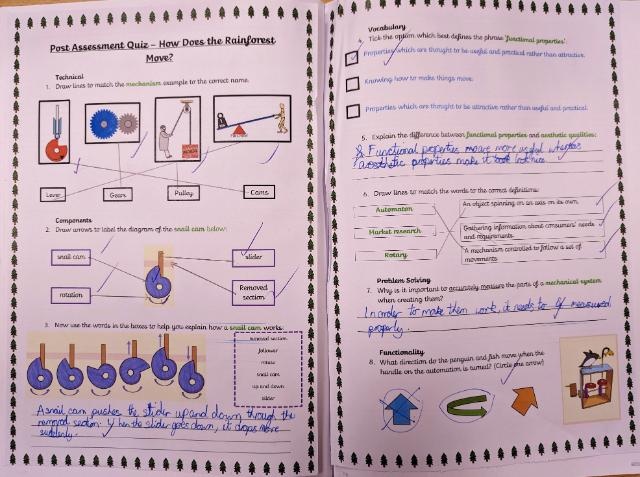 Post Assessment Quiz – How Does the Rainforest
Move?
Technical
1. Draw lines to match the mechanism example to the correct name.
Lever
Gears
Pulley
Cams
Components
2. Draw arrows to label the diagram of the snail cam below:
snail cam
slider
rotation
Removed
section
3. Now use the words in the boxes to help you explain how a snail cam works:
removed section
follower
rotate
snail cam
up and down
slider
A snail cam pushes the slider up and down through the
removed section. when the slider goes down, it drops more
suddenly.
Vocabulary
4. Tick the option which best defines the phrase 'functional properties':
Properties which are thought to be useful and practical rather than attractive.
Knowing how to make things move.
Properties which are thought to be attractive rather than useful and practical.
5. Explain the difference between functional properties and aesthetic qualities:
Functional properties more useful whereas
aesthetic properties make it look nice.
6. Draw lines to match the words to the correct definitions:
Automaton
An object spinning on an axis on its own.
Market research
Gathering information about consumers' needs
and requirements.
Rotary
A mechanism controlled to follow a set of
movements.
Problem Solving
7. Why is it important to accurately measure the parts of a mechanical system
when creating them?
In order to make them work, it needs to measured
properly.
Functionality
8. What direction do the penguin and fish move when the
handle on the automation is turned? (Circle one arrow)